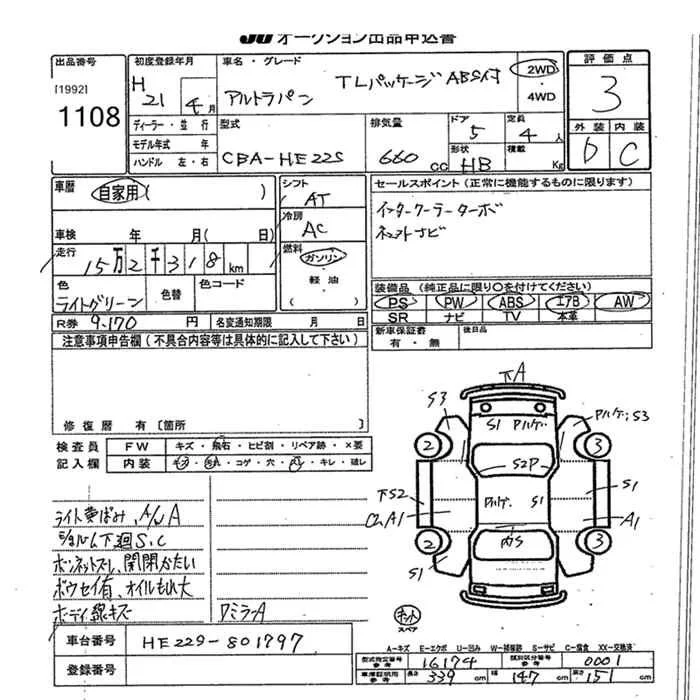 JU オークション出品申込書
出品番号 初度登録年月 車名・グレード 評価点
[1992] 1108
H 21 4月 アルトラパン TLパッケージABS付 2WD・4WD 3
ディーラー・並行 型式 排気量 ドア 5 定員 4人 外装 内装
モデル年式 年 CBA-HE22S 660CC 形状 HB 積載 Kg D C
ハンドル 左・右
車歴 自家用( ) シフト AT セールスポイント(正常に機能するものに限ります)
冷房 AC インタークーラーターボ
車検 年 月( 日) 燃料 ガソリン・軽油 ( )
走行 15万2千318km
色 ライトグリーン 色替 色コード
装備品(純正品に限り○を付けてください)
PS PW ABS エアB AW
SR ナビ TV 本革
R券 9,170円 名変通知期限 月 日 新車保証書 有・無 後日品
注意事項申告欄(不具合内容等は具体的に記入して下さい)
修復歴 有 [箇所 ]
検査員記入欄 FW キズ・飛石・ヒビ割・リペア跡・×要
内装 キズ・汚れ・コゲ・穴・・キレ・破レ
ライト黄ばみ、A/W A
下廻S、C
ボンネットズレ、開閉かたい
ボウセイ有、オイルもれ大
ボディ線キズ
ワミラーA
下A
S3
S1 Pルケ.
Pルケ; S3
2
3
S2P
下S2
Pルケ.
S1
S1
C2A1
A1
2
内S
3
S1
スペア
車台番号 HE22S-801797
登録番号
A-キズ E-エクボ U-凹み W-補修跡 S-サビ C-腐食 XX-交換済
型式指定番号参考 16174 類別区分番号参考 0001
車庫証明用参考 長さ 339cm 幅 147cm 高さ 151cm